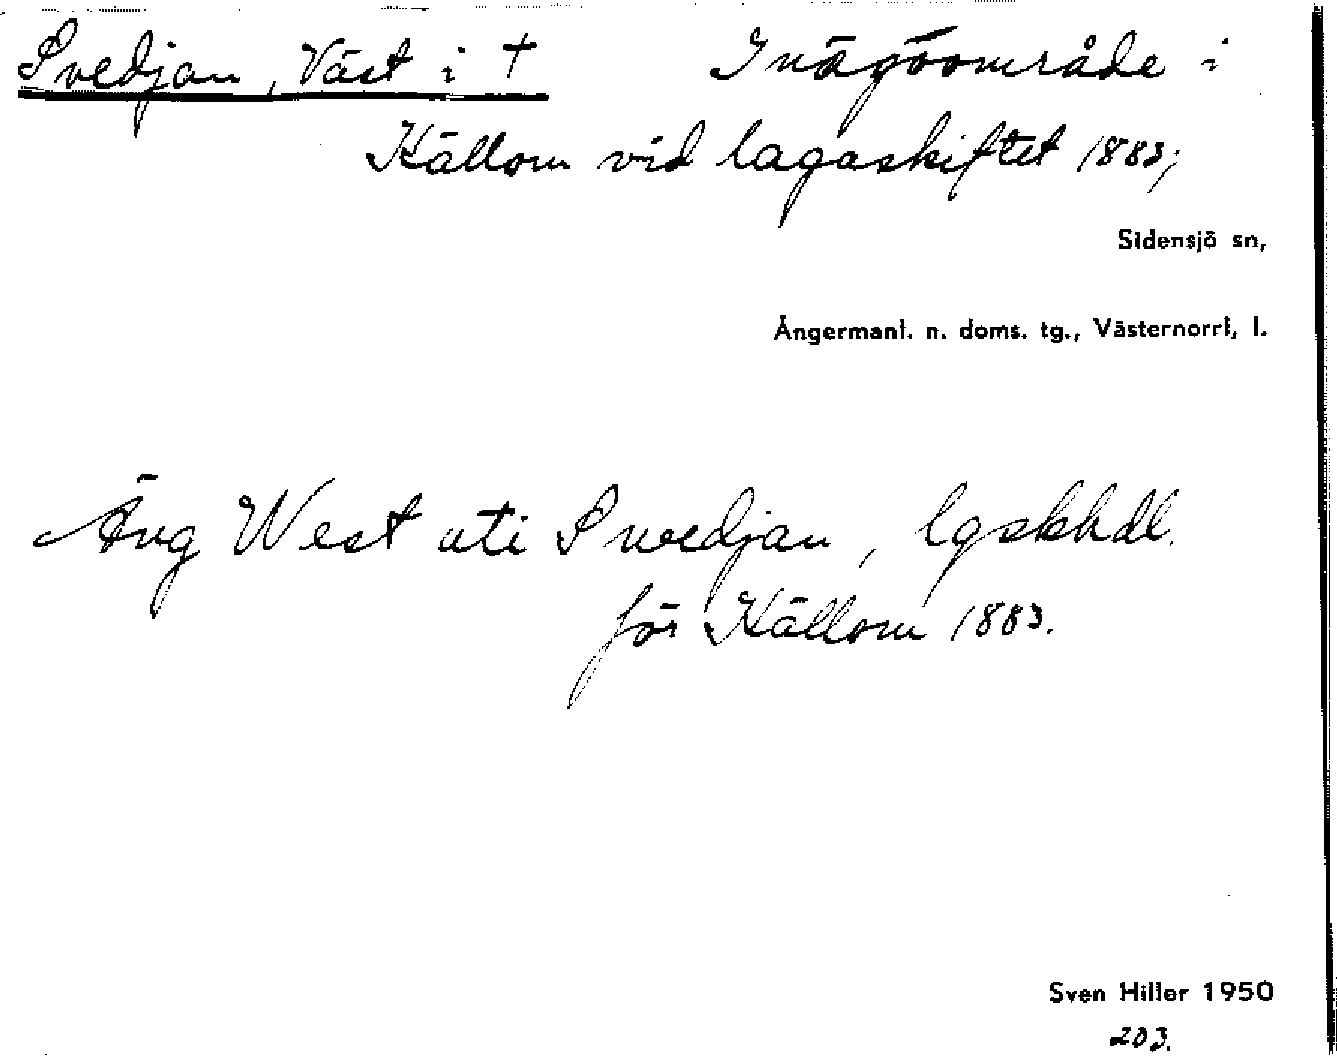 Svedjan, Väst i † Inägoområde i
Källom vid lagaskiftet 1883;
Sidensjö sn,
Ångermanl. n. doms. tg., Västernorrl, l.
Äng West uti Swedjan, lgskhdl.
för Källom 1883.
Sven Hiller 1950
203.